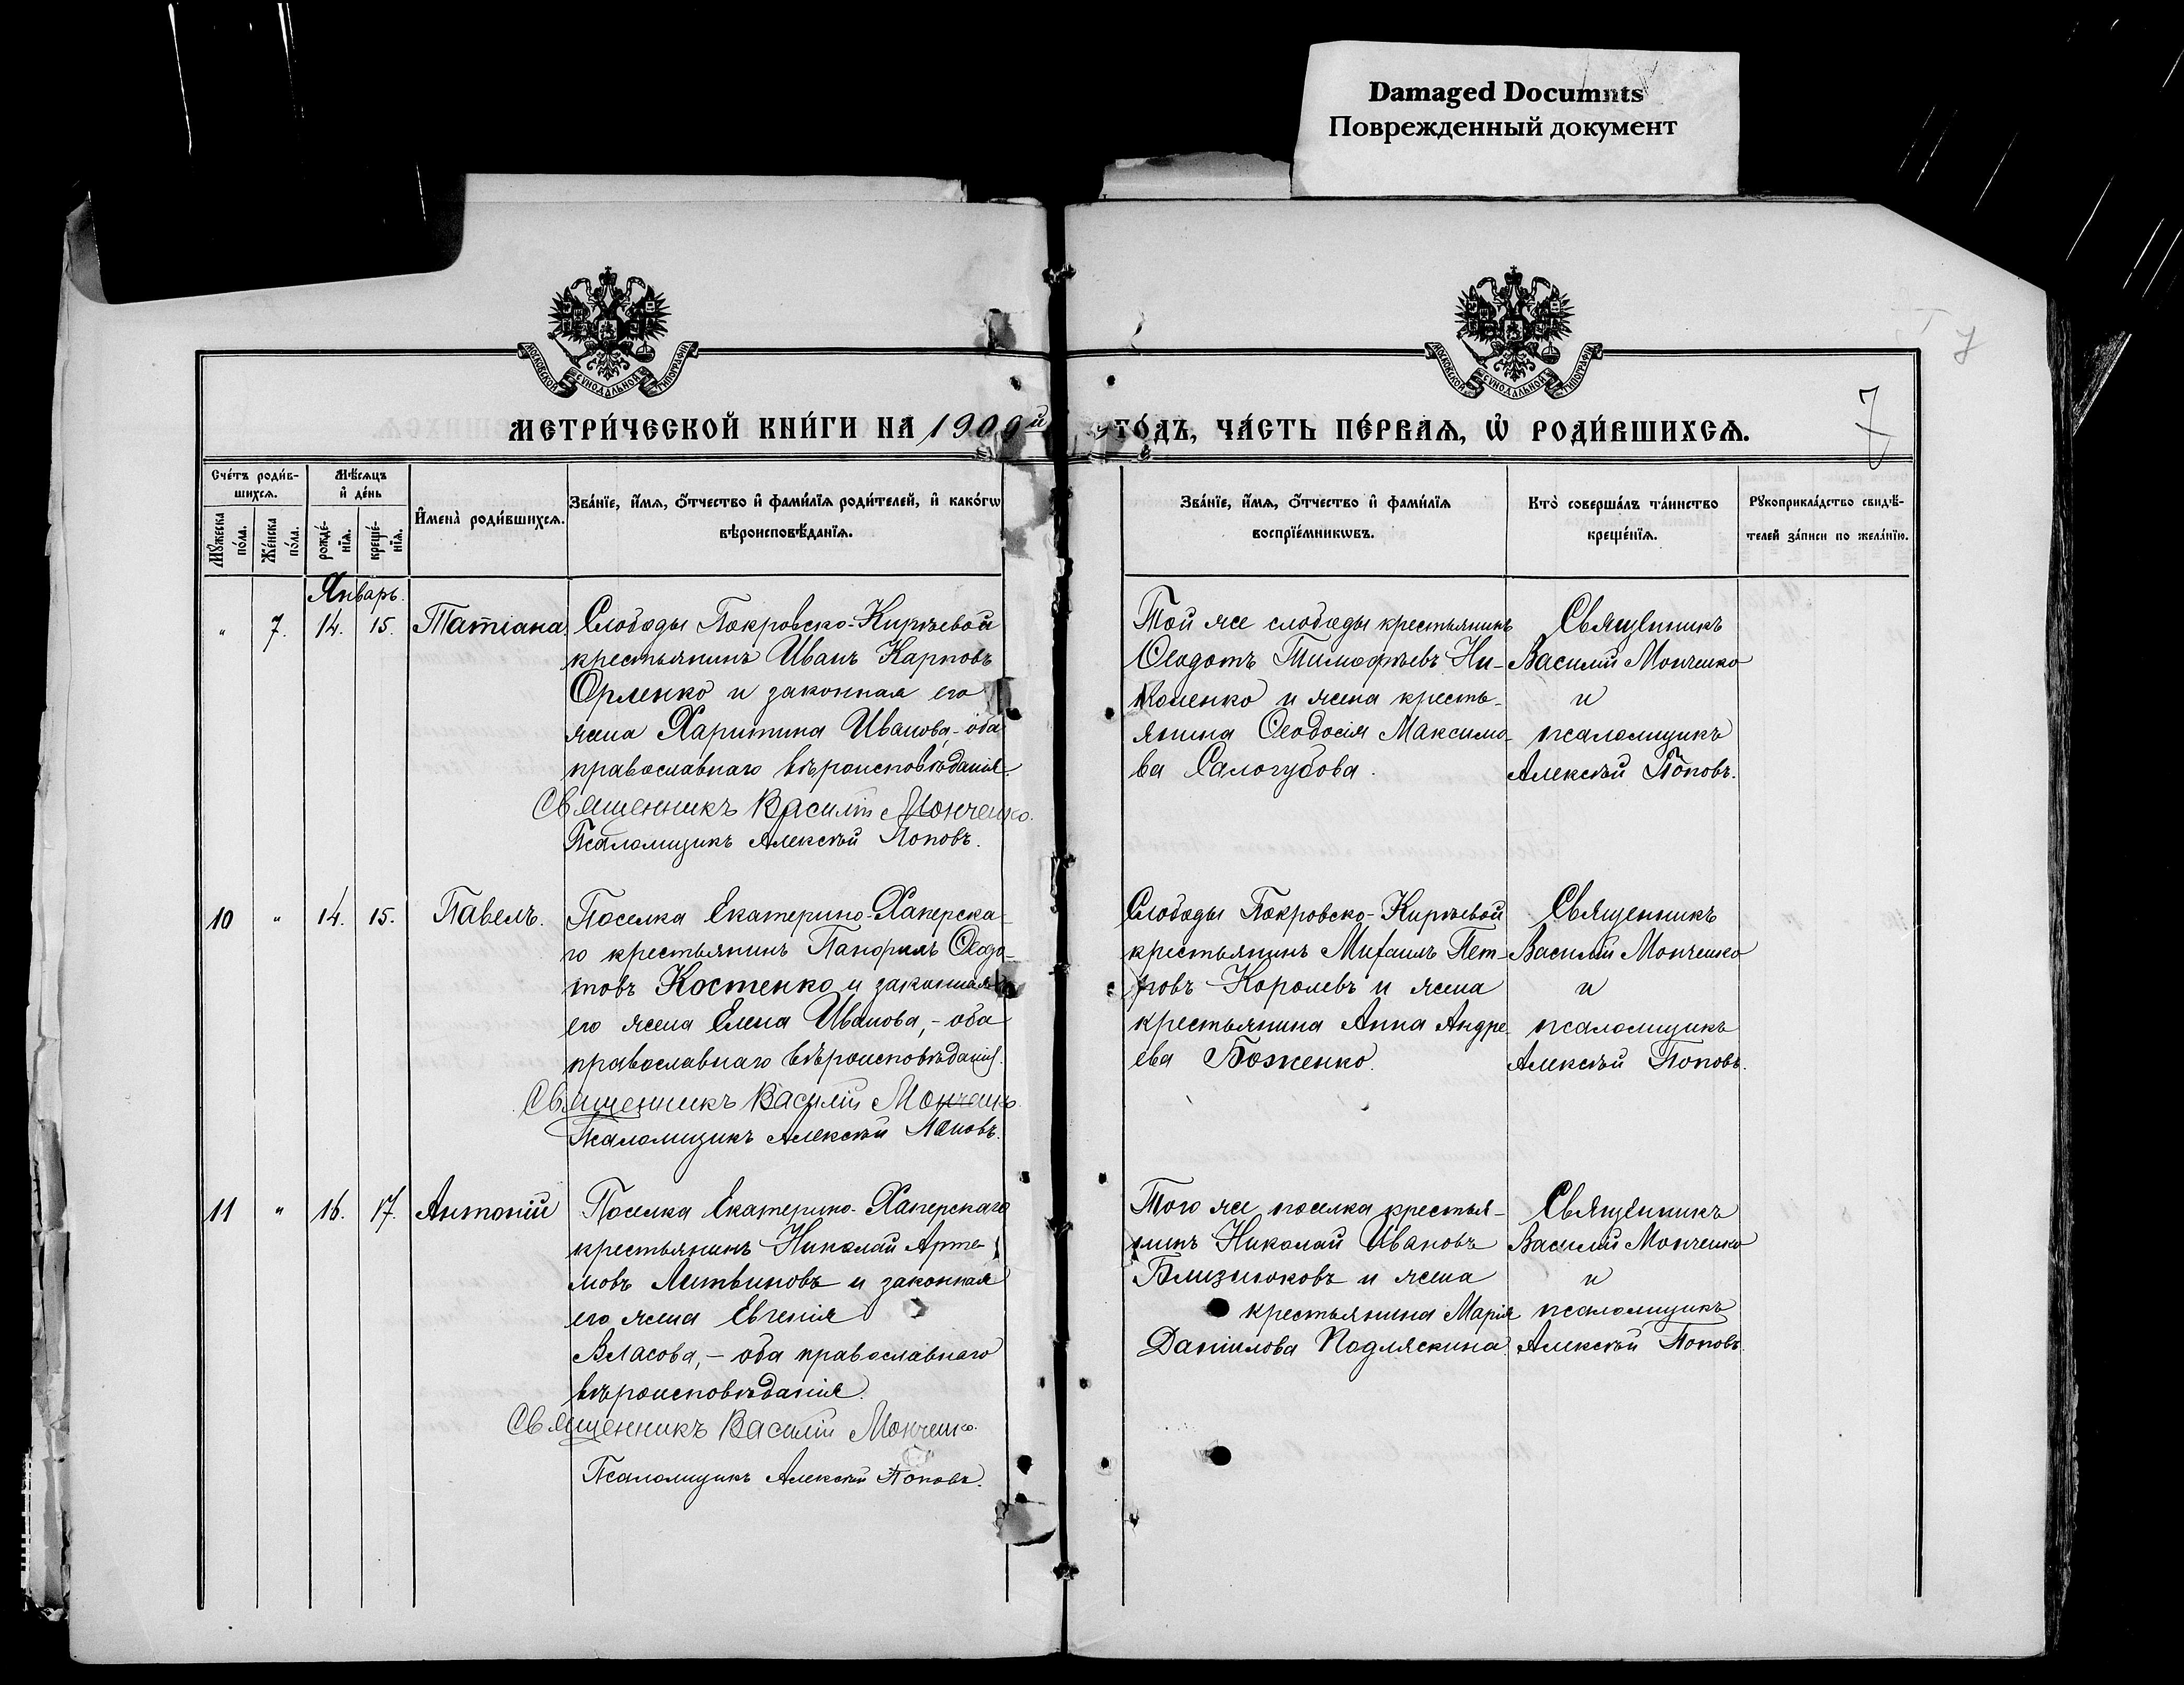 Damaged Documnts
Поврежденный документ
МОСКОВСКОЙ СѴНОДАЛЬНОЙ ТИПОГРАФІИ
МОСКОВСКОЙ СѴНОДАЛЬНОЙ ТИПОГРАФІИ
7
7
МЕТРИ́ЧЕСКОЙ КНИ́ГИ НА 1909й го́дъ, ЧА́СТЬ ПЕ́РВАѦ, Ѡ҆ РОДИ́ВШИХСѦ.
Сче́тъ роди́в-
шихсѧ.
Мꙋ́жеска
по́ла.
Же́нска
по́ла.
Мѣ́сѧцъ
и҆ де́нь
рожде́-
нїѧ.
креще́-
нїѧ.
И҆мена̀ роди́вшихсѧ.
Зва́нїе, и҆́мѧ, ѻ҆́тчество и҆ фами́лїѧ роди́телей, и҆ како́гѡ
вѣроисповѣ́данїѧ.
Зва́нїе, и҆́мѧ, ѻ҆́тчество и҆ фами́лїѧ
воспрїе́мникѡвъ.
Кто̀ соверша́лъ та́инство
креще́нїѧ.
Рꙋкоприкла́дство свидѣ́-
телей за́писи по жела́нїю.
Январь.
" 7. 14. 15. Татіана.
Слободы Покровско-Киреевой
крестьянинъ Иванъ Карповъ
Орленко и законная его
жена Харитина Иванова,-оба
православнаго вѣроисповѣданія.
Священникъ Василій Монченко.
Псаломщикъ Алексѣй Поповъ.
Той же слободы крестьянинъ
Ѳеодотъ Тимофѣевъ Ни-
коненко и жена кресть-
янина Ѳеодосія Максимо-
ва Салогубова.
Священникъ
Василій Монченко
и
псаломщикъ
Алексѣй Поповъ.
10 " 14. 15. Павелъ.
Поселка Екатерино-Хаперска-
го крестьянинъ Панфилъ Ѳеодо-
товъ Костенко и законная
его жена Елена Иванова,-оба
православнаго вѣроисповѣданія.
Священникъ Василій Монченко
Псаломщикъ Алексѣй Поповъ.
Слободы Покровско-Киреевой
крестьянинъ Михаилъ Пет-
ровъ Королевъ и жена
крестьянина Анна Андре-
ева Боженко.
Священникъ
Василій Монченко
и
псаломщикъ
Алексѣй Поповъ.
11 " 16. 17. Антоній
Поселка Екатерино-Хаперскаго
крестьянинъ Николай Арте-
мовъ Литвиновъ и законная
его жена Евгенія
Власова,-оба православнаго
вѣроисповѣданія.
Священникъ Василій Монченко.
Псаломщикъ Алексѣй Поповъ.
Того же поселка крестья-
нинъ Николай Ивановъ
Близнюковъ и жена
крестьянина Марія
Даніилова Подляскина
Священникъ
Василій Монченко
и
псаломщикъ
Алексѣй Поповъ.